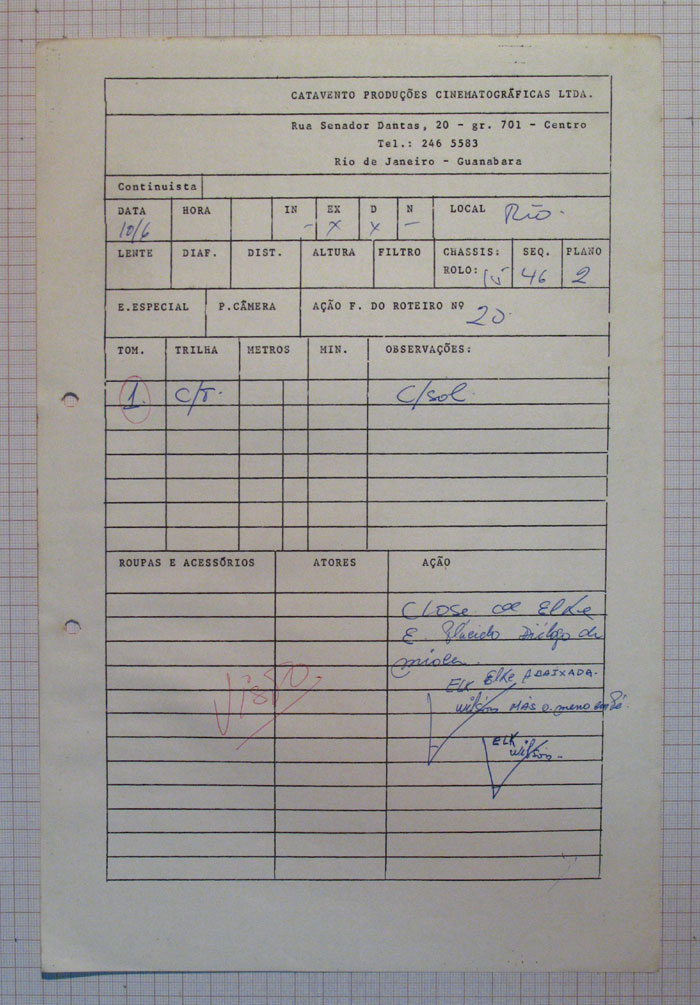 CATAVENTO PRODUÇÕES CINEMATOGRÁFICAS LTDA.
Rua Senador Dantas, 20 - gr. 701 - Centro
Tel.: 246 5583
Rio de Janeiro - Guanabara
Continuista
DATA HORA IN EX D N LOCAL Rio.
10/6 - X X -
LENTE DIAF. DIST. ALTURA FILTRO CHASSIS: SEQ. PLANO
ROLO: 15 46 2
E.ESPECIAL P.CÂMERA AÇÃO F. DO ROTEIRO Nº 20
TOM. TRILHA METROS MIN. OBSERVAÇÕES:
1. C/sol
ROUPAS E ACESSÓRIOS ATORES AÇÃO
CLOSE de Elke
E Plácido Diálogo de
Visto
ELK Elke ABAIXADA.
Wilson MAS o. meno em Pé.
ELK
Wilson